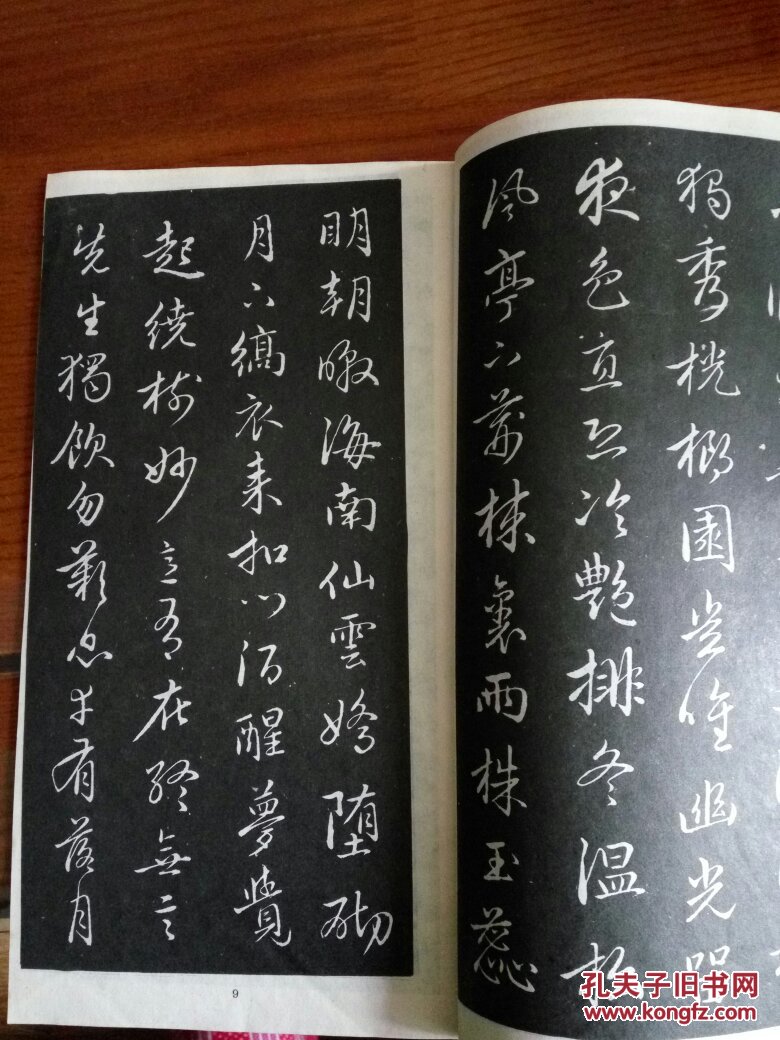 獨秀桄榔園豈唯幽光留
夜色直恐冷艷排冬温松
風亭下荊棘裏兩株玉蕊
明朝暾海南仙雲嬌墮砌
月下縞衣來扣門酒醒夢覺
起繞樹妙意有在終無言
先生獨飲勿歎息幸有落月
9
孔夫子旧书网
www.kongfz.com